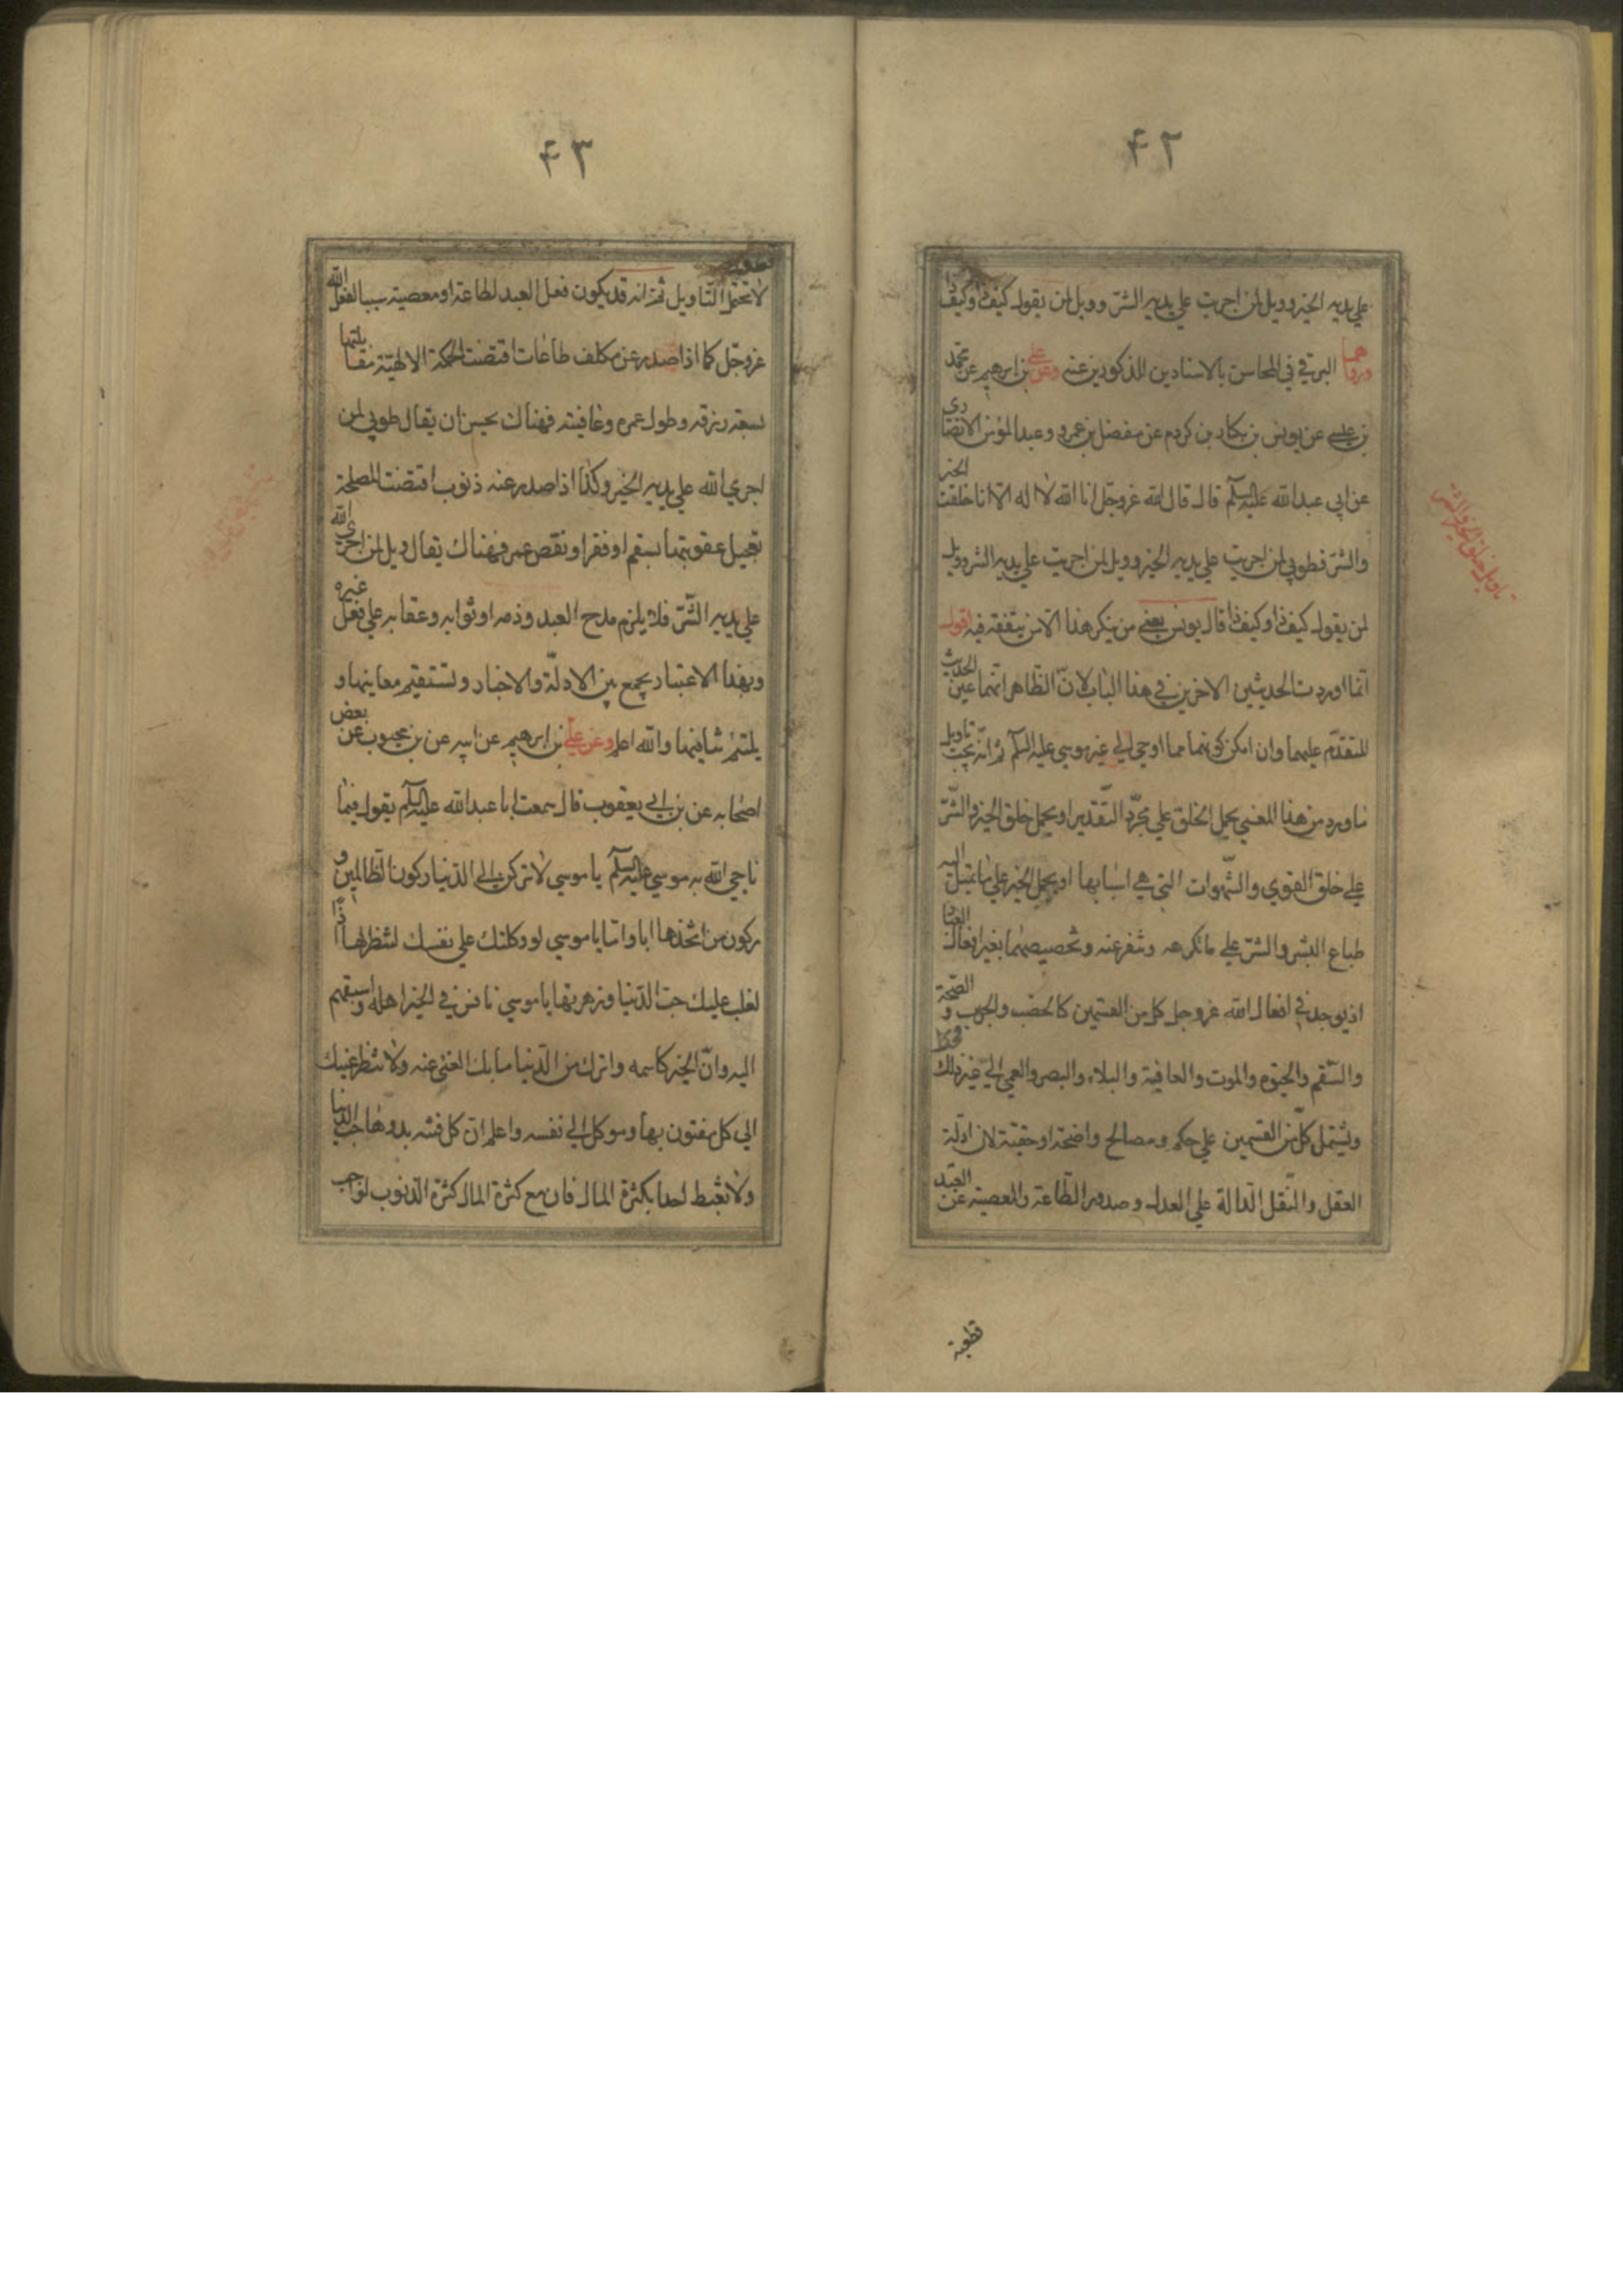 ۴۲
علي يديه الخير وويل لمن اجريت علي يديه الشر وويل لمن يقول كيف ذا وكيف ذا
ورواهما البرقي في المحاسن بالاسنادين المذكورين عنه وعن علي بن ابرهيم عن محمد
بن عيسى عن يونس بن بكار بن كردم عن مفضل بن عمرو وعبد المؤمن الانصاري
عن ابي عبد الله عليه السلم قال قال الله عز وجل انا الله لا اله الا انا خلقت الخير
والشر فطوبي لمن اجريت علي يديه الخير وويل لمن اجريت علي يديه الشر وويل
لمن يقول كيف ذا وكيف ذا قال يونس يعني من ينكر هذا الامر بتفقه فيه اقول
انما اوردت الحديثين الاخرين في هذا الباب لان الظاهر انهما عين الحديث
المتقدم عليهما وان امكن كونهما مما اوحي الي غير موسي عليه السلم ثم انه يجب تاويل
ما ورد من هذا المعني بحمل الخلق علي مجرد التقدير او بحمل خلق الخير والشر
علي خلق القوي والشهوات التي هي اسبابها او بحمل الخير علي ما تميل اليه
طباع البشر والشر علي ما تكرهه وتنفر عنه وتخصيصهما بغير افعال العباد
اذ يوجد في افعال الله عز وجل كل من القسمين كالخصب والجدب والصحة
والسقم والحيوة والموت والعافية والبلاء والبصر والعمي الي غير ذلك
ويشتمل كل من القسمين علي حكم ومصالح واضحة او خفية لان ادلة
العقل والنقل الدالة علي العدل وصدور الطاعة والمعصية عن العبد
قطعية
تاويل خلق الخير والشر
۴۳
قطعية
لا تحتمل التاويل ثم انه قد يكون فعل العبد لطاعة او معصية سببا لفعل الله
عز وجل كما اذا صدر عن مكلف طاعات اقتضت الحكمة الالهية مقابلتها
بسعة رزقه وطول عمره وعافيته فهناك يحسن ان يقال طوبي لمن
اجري الله علي يديه الخير وكذا اذا صدر عنه ذنوب اقتضت المصلحة
تعجيل عقوبتها بسقم او فقر او نقص عمر فهناك يقال ويل لمن اجري الله
علي يديه الشر فلا يلزم مدح العبد وذمه او ثوابه وعقابه علي فعل غيره
وبهذا الاعتبار يجمع بين الادلة والاخبار وتستقيم معاينها و
يلتئم شانيها والله اعلم وعن علي بن ابرهيم عن ابيه عن بن محبوب عن بعض
اصحابه عن بن ابي يعفوب قال سمعت ابا عبد الله عليه السلم يقول فيما
ناجي الله به موسي عليه السلم يا موسي لا تركن الي الدنيا ركون الظالمين و
ركون من اتخذها ابا واما يا موسي لو وكلتك علي نفسك لتنظر لها اذا
لغلب عليك حب الدنيا وزهرتها يا موسي نافس في الخير اهله واسبقهم
اليه وان الخير كاسمه واترك من الدنيا ما بك الغني عنه ولا تنظر عينك
الي كل مفتون بها وموكل الي نفسه واعلم ان كل فتنه بدوها حب الدنيا
ولا تغبط احدا بكثرة المال فان مع كثرة المال كثرة الذنوب لواجب